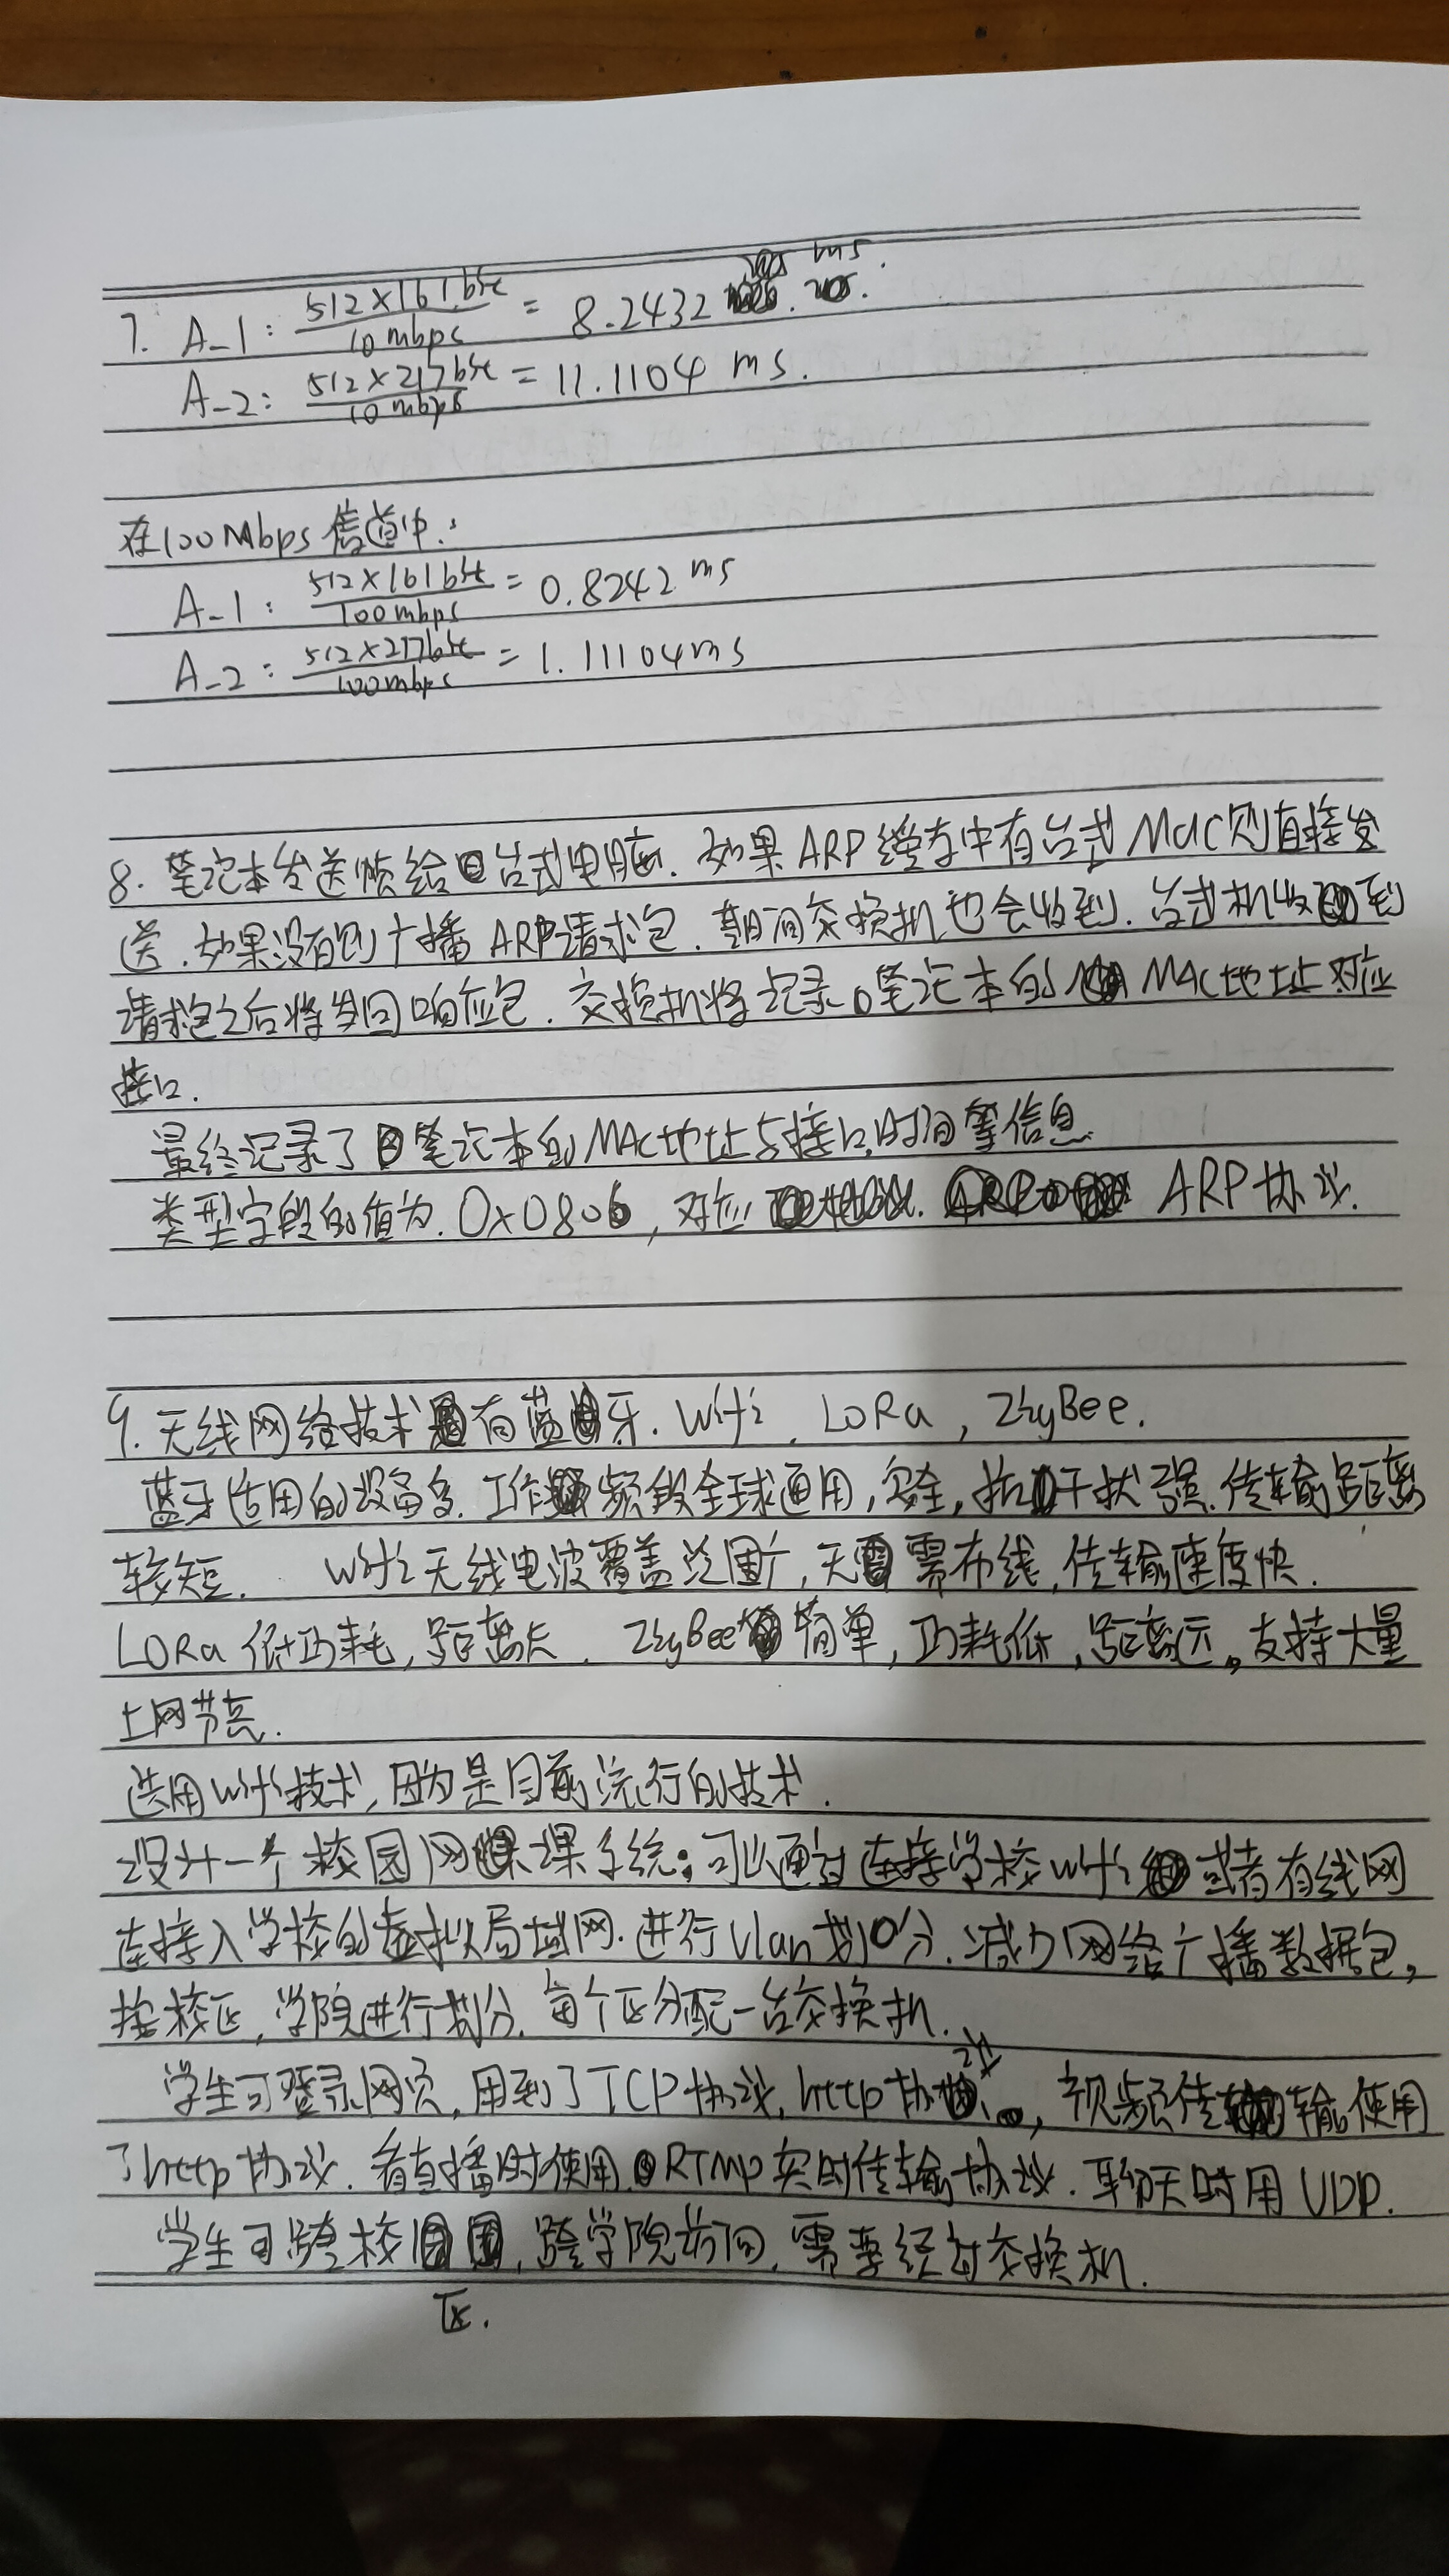 7. A-1: 512×161bit / 10mbps = 8.2432 ms.
A-2: 512×217bit / 10mbps = 11.1104 ms.
在100Mbps信道中:
A-1: 512×161bit / 100mbps = 0.8242 ms
A-2: 512×217bit / 100mbps = 1.11104ms
8. 笔记本发送帧给台式电脑. 如果ARP缓存中有台式MAC则直接发
送. 如果没有则广播ARP请求包. 期间交换机也会收到. 台式机收到
请求包之后将发回响应包. 交换机将记录。笔记本的MAC地址对应
接口.
最终记录了笔记本的MAC地址与接口,时间等信息.
类型字段的值为. 0x0806, 对应 ARP协议.
9. 无线网络技术有蓝牙. Wifi, LoRa, ZigBee.
蓝牙适用的设备多. 工作频段全球通用, 安全, 抗干扰强. 传输距离
较短. Wifi无线电波覆盖范围广, 无需布线, 传输速度快.
LORa 低功耗, 距离长. ZigBee简单, 功耗低, 距离远。支持大量
上网节点.
选用wifi技术, 因为是目前流行的技术.
设计一个校园网课系统: 可以通过连接学校wifi或者有线网
连接入学校的虚拟局域网. 进行Vlan划分. 减少网络广播数据包,
按校区, 学院进行划分. 每个区分配一台交换机.
学生可登录网页, 用到了TCP协议, http协议, 视频传输使用
了http协议. 看直播时使用RTMP实时传输协议. 聊天时用UDP.
学生可跨校区, 跨学院访问, 需要经过交换机.